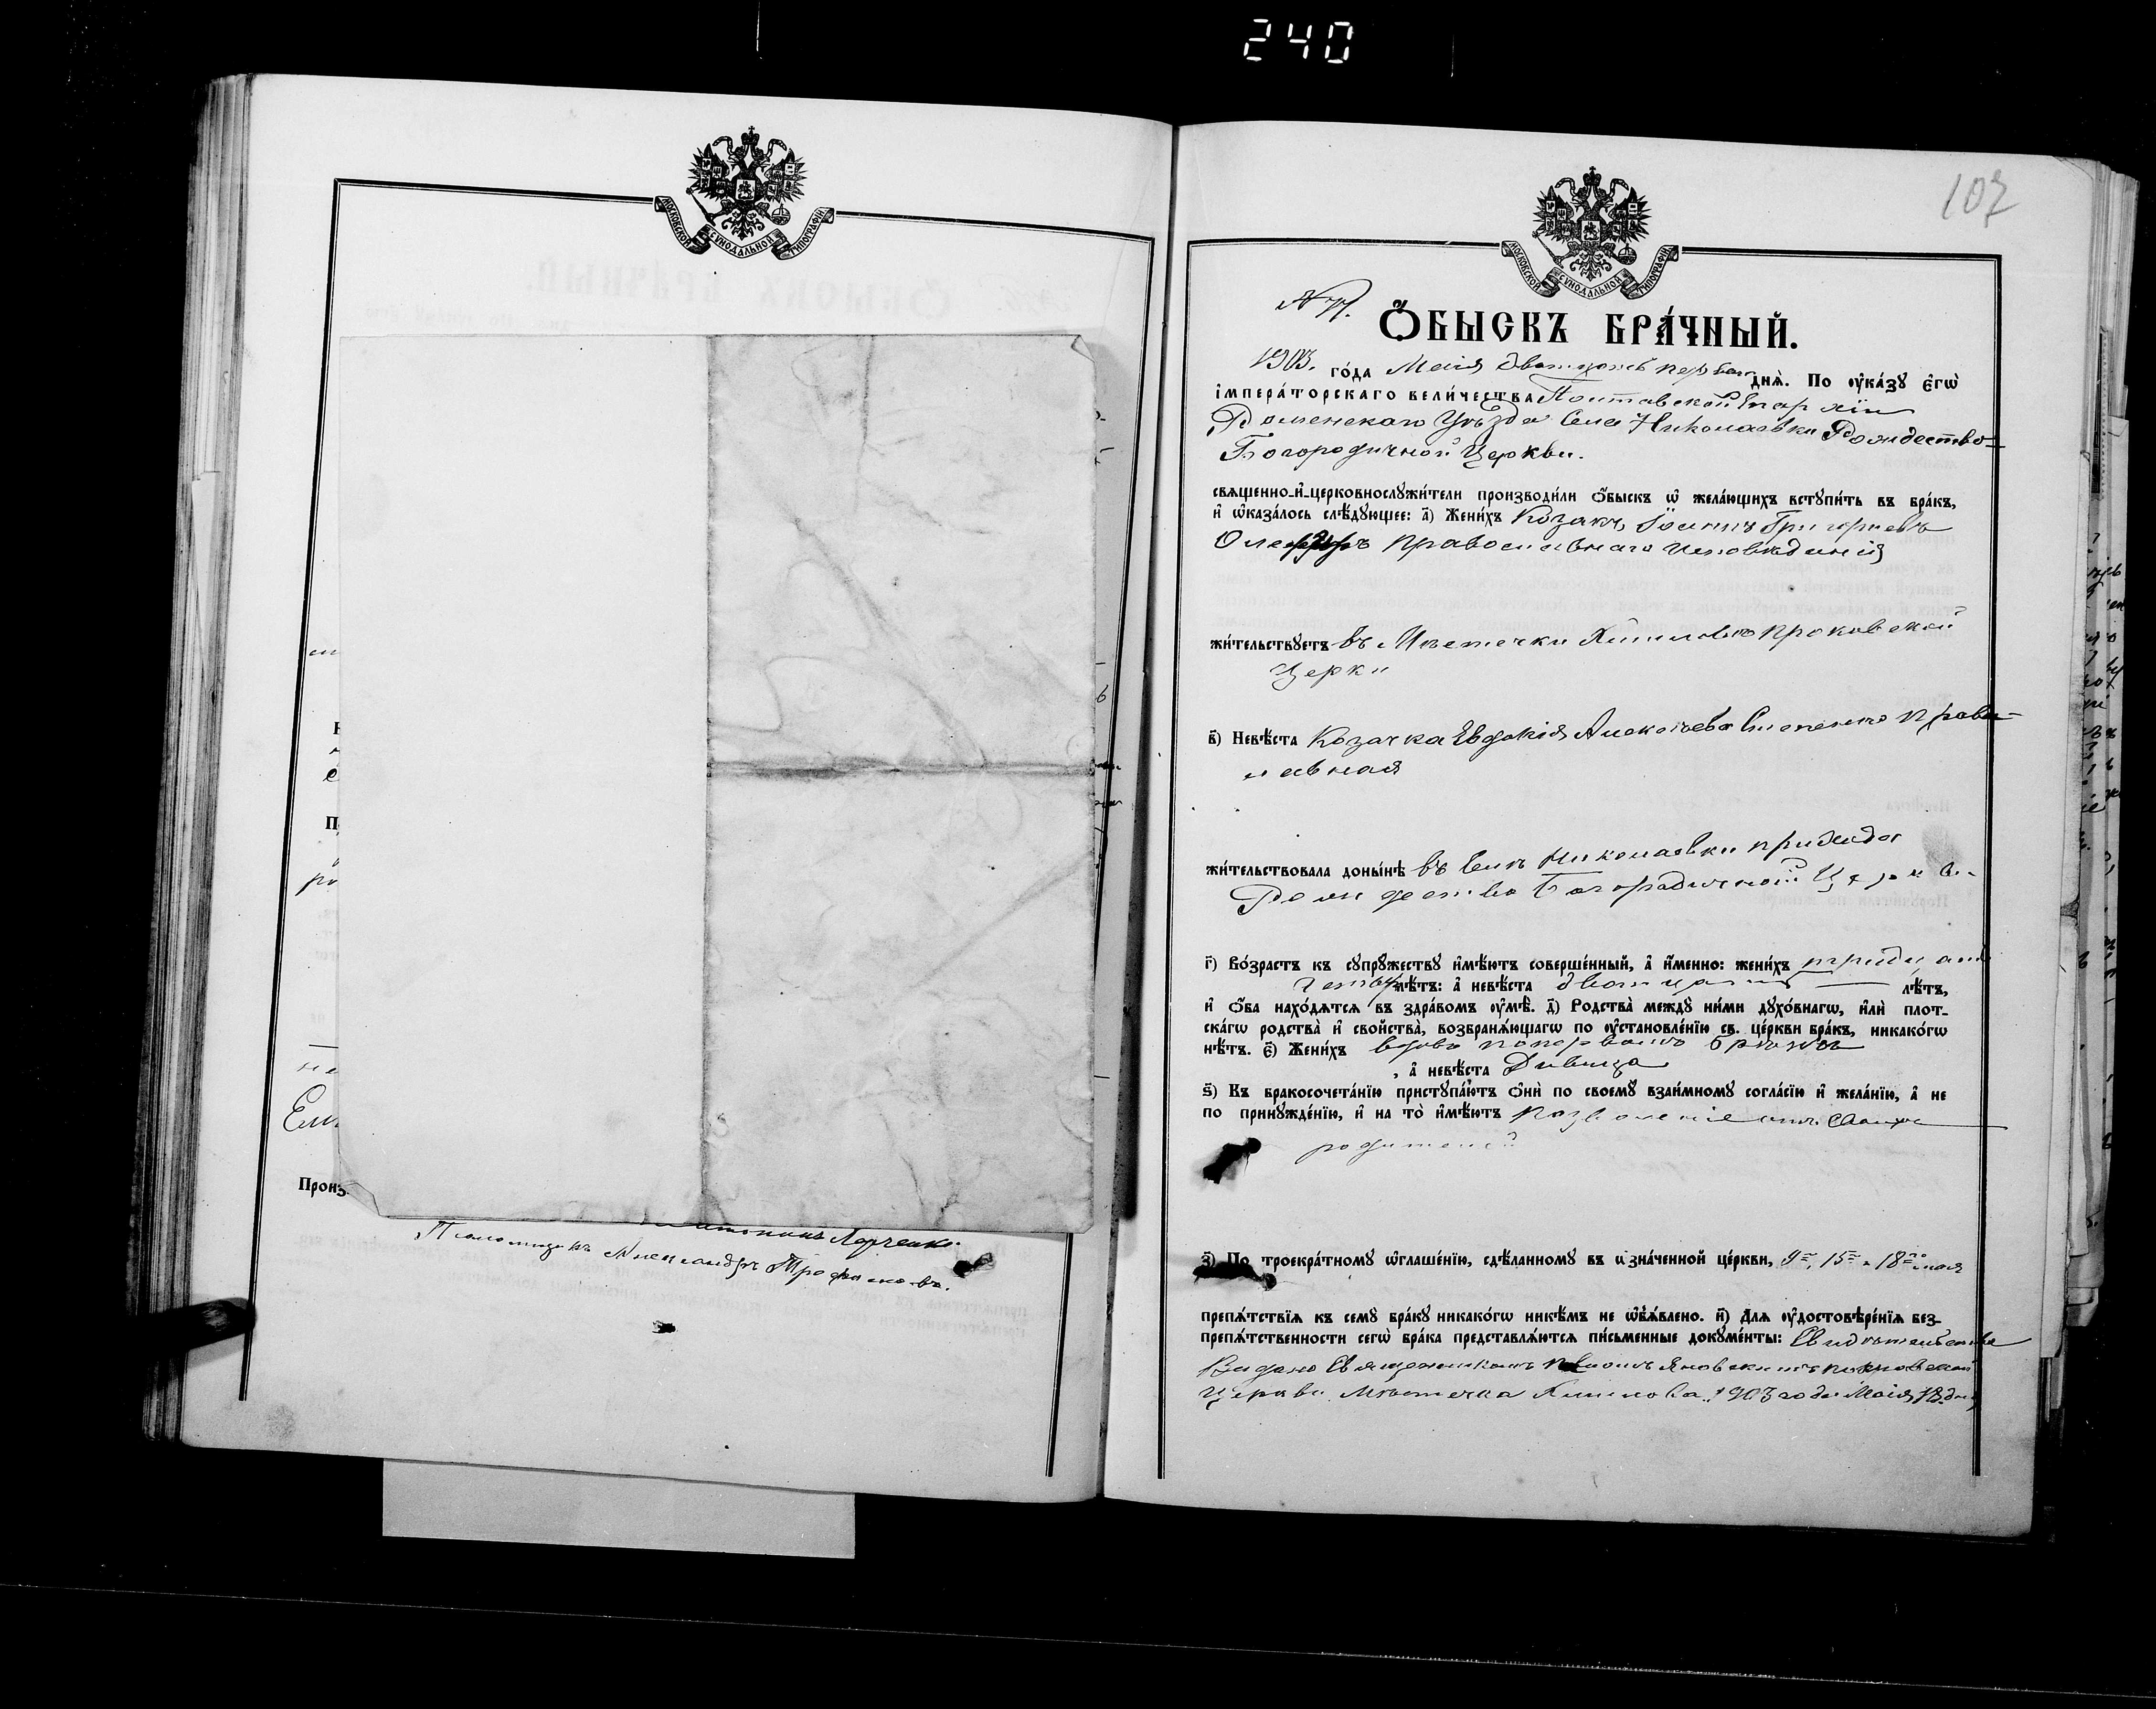 240
МОСКОВСКОЙ СУНОДАЛЬНОЙ ТИПОГРАФІИ
Произ
Псаломщикъ Александръ Трофимовъ.
107
МОСКОВСКОЙ СУНОДАЛЬНОЙ ТИПОГРАФІИ
Ѻ҆БЫСКЪ БРА́ЧНЫЙ.
1903. го́да Маія двадцать перваго днѧ̀. По ᲂу҆ка́зꙋ є҆гѡ̀
і҆мпера́торскаго вели́чества Полтавской Епархіи
Роменскаго Уѣзда Села Николаевки Рождество-
Богородичной Церкви.
свѧщенно-и҆-церковнослꙋжи́тели производи́ли ѻ҆́быскъ ѡ҆ жела́ющихъ встꙋпи́ть въ бра́къ,
и҆ ѡ҆каза́лось слѣ́дꙋющее: а҃) Жени́хъ Козакъ Іоаннъ Григорьевъ
православнаго исповѣданія
жи́тельствꙋетъ въ Мѣстечки Хмиловѣ Проковской
Церки
в҃) Невѣ́ста Козачка Евдокія Алексѣева Степенко Право-
славная
жи́тельствовала доны́нѣ въ Селѣ Николаевки прихода
Рождество Богородичной Церкви
г҃) Во́зрастъ къ сꙋпрꙋ́жествꙋ и҆мѣ́ютъ соверше́нный, а҆ и҆́менно: жени́хъ тридцать
четыре лѣ́тъ: а҆ невѣ́ста двадцать лѣ́тъ,
и҆ ѻ҆́ба нахо́дѧтсѧ въ здра́вомъ ᲂу҆мѣ̀. д҃) Родства̀ междꙋ̀ ни́ми дꙋхо́внагѡ, и҆лѝ плот-
ска́гѡ родства̀ и҆ сво́йства̀, возбранѧ́ющагѡ по ᲂу҆становле́нїю св. це́ркви бра́къ, никако́гѡ
нѣ́тъ. є҃) Жени́хъ вдовъ по первомъ бракѣ
, а҆ невѣ́ста Дивица
ѕ҃) Къ бракосочета́нїю пристꙋпа́ютъ ѻ҆нѝ по своемꙋ̀ взаи́мномꙋ согла́сїю и҆ жела́нїю, а҆ не
по принꙋжде́нїю, и҆ на то̀ и҆мѣ́ютъ позволеніе отъ своихъ
родителей
з҃) По троекра́тномꙋ ѡ҆глаше́нїю, сдѣ́ланномꙋ въ ѡзна́ченной це́ркви, 9го, 15го и 18го мая
препѧ́тствїѧ къ семꙋ̀ бра́кꙋ никако́гѡ никѣ́мъ не ѡ҆б̾ѧ́влено. и҃) Длѧ ᲂу҆достовѣре́нїѧ без-
препѧ́тственности сегѡ̀ бра́ка представлѧ́ютсѧ пи́сьменные докꙋме́нты: Свидѣтельство
Видано Священникомъ Яновскимъ Покровской
Церкви Мѣстечка Хмилова 1903 года Маія 18 дня